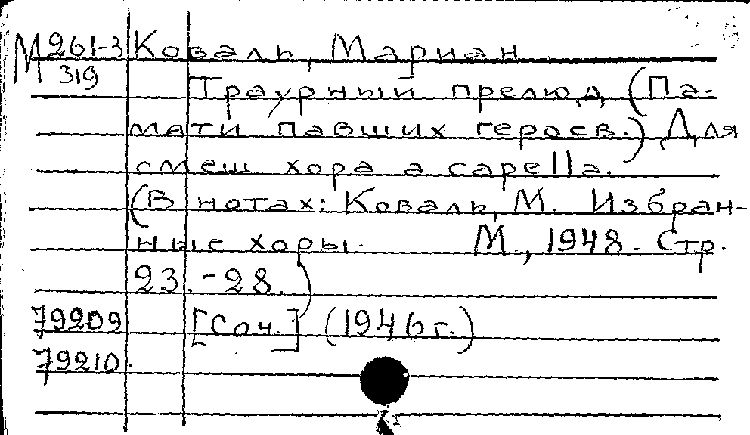 М 261-3 Коваль, Мариан
319
Траурный прелюд (Па-
мяти павших героев.) Для
смеш хора a capella.
(В нотах: Коваль, М. Избран-
ные хоры. М., 1948. Стр.
23.-28.)
79209 [Соч.] (1946 г.)
79210